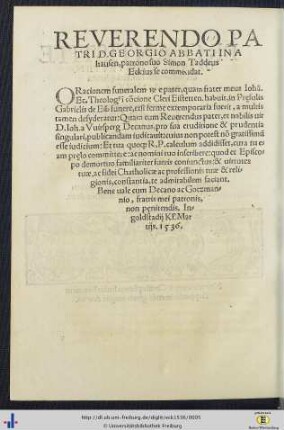 REVERENDO PA
TRI D. GEORGIO ABBATI IN A
hausen, patrono suo Simon Taddeus
Eckius se commendat.
ORationem funeralem ut putat, quam frater meus Iohã.
Ec. Theologꝰ ĩ cõcione Cleri Eistetteñ. habuit, in
Gabrielis de Eib funere, etsi ferme extemporaria fuerit, a multis
tamen desyderatur: Quam cum Reuerendus pater, et nobilis uir
D. Ioh. a Vuirsperg Decanus, pro sua eruditione & prudentia
singulari, publicandam iudicauit: cuius non potest nõ grauissimũ
esse iudicium: Et tua quoque R. P. calculum addidisset, cura ut
eam prelo committere: ac nomini tuo inscribere: quod et Episco
po demortuo familiariter fueris coniunctus: & uirtutes
tuæ, ac fidei Chatholicæ ac professionis tuæ & reli-
gionis, constantia, te admirabilem faciant.
Bene uale cum Decano ac Goetzman-
nio, fratris mei patronis,
non penitendis. In-
goldstadij KL. Mar
tijs. 1536.
http://dl.ub.uni-freiburg.de/diglit/eck1536/0005
© Universitätsbibliothek Freiburg